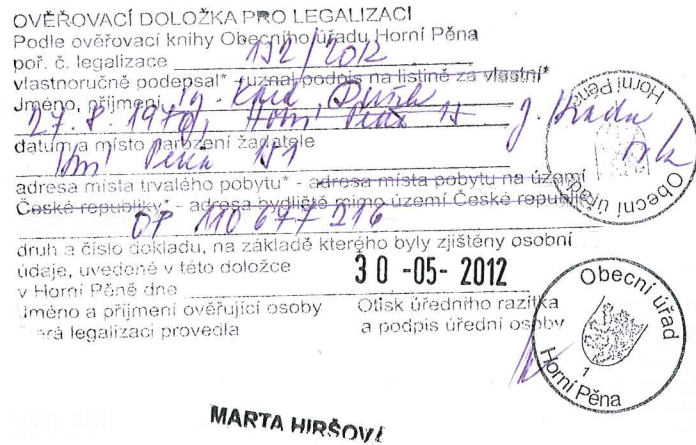 OVĚŘOVACÍ DOLOŽKA PRO LEGALIZACI
Podle ověřovací knihy Obecního úřadu Horní Pěna
poř. č. legalizace 192/2012
vlastnoručně podepsal* - uznal podpis na listině za vlastní*
Jméno, příjmení
27. 8. 19 Horní Pěna J. Hradec
datum a místo narození žadatele
Horní Pěna
adresa místa trvalého pobytu* - adresa místa pobytu na území
České republiky* - adresa bydliště mimo území České republiky*
OP 110 677 216
druh a číslo dokladu, na základě kterého byly zjištěny osobní
údaje, uvedené v této doložce
v Horní Pěně dne 30 -05- 2012
Jméno a příjmení ověřující osoby Otisk úředního razítka
která legalizaci provedla a podpis úřední osoby
Obecní úřad
Horní Pěna
Obecní úřad
1
Horní Pěna
MARTA HIRŠOVÁ